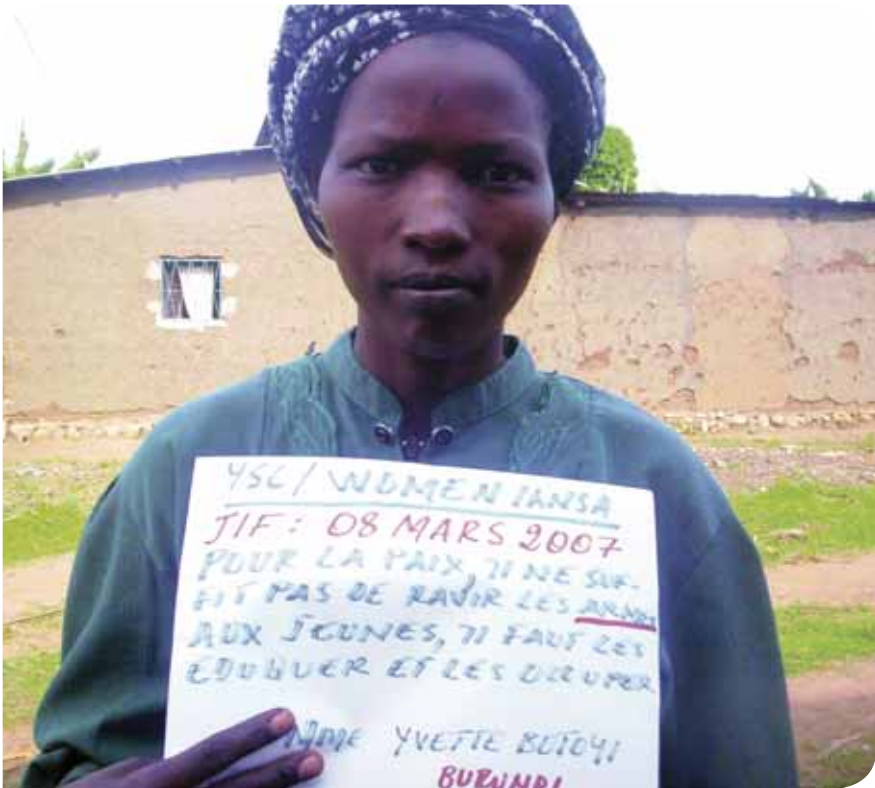 YSC / WOMEN IANSA
JIF : 08 MARS 2007
POUR LA PAIX, IL NE SUF-
FIT PAS DE RAVIR LES ARMES
AUX JEUNES, IL FAUT LES
EDUQUER ET LES OCCUPER
MME YVETTE
BURUNDI